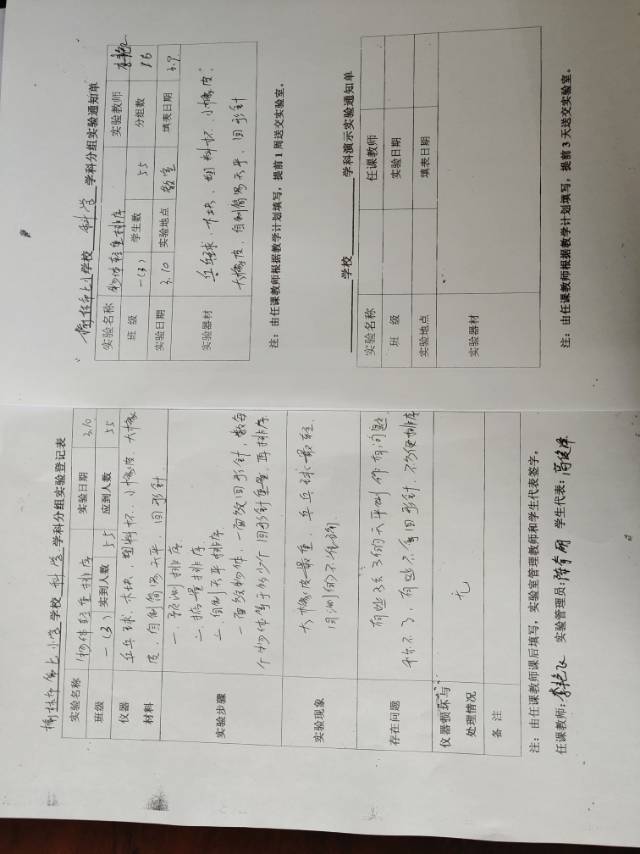 学校 科学 学科分组实验登记表
实验名称 物体轻重排序 实验日期 3.10
班级 一(3) 实到人数 55 应到人数 55
仪器 材料 乒乓球、木块、塑料杯、小橡皮、大橡
皮、自制简易天平、回形针
实验步骤
一、预测排序
二、掂量排序
三、自制天平排序
一面放物体,一面放回形针,数每
个物体等于多少个回形针重量,再排序
实验现象
大橡皮最重,乒乓球最轻,
存在问题
仪器损坏与
处理情况 无
备注
注:由任课教师课后填写,实验室管理教师和学生代表签字。
任课教师: 实验管理员: 学生代表:
学校 科学 学科分组实验通知单
实验名称 物体轻重排序 实验教师
班级 一(3) 学生数 55 分组数 16
实验日期 3.10 实验地点 教室 填表日期 3.9
实验器材
乒乓球、木块、塑料杯、小橡皮、
大橡皮、自制简易天平、回形针
注:由任课教师根据教学计划填写,提前1周送交实验室。
学校 学科演示实验通知单
实验名称 任课教师
班级 实验日期
实验地点 填表日期
实验器材
注:由任课教师根据教学计划填写,提前3天送交实验室。